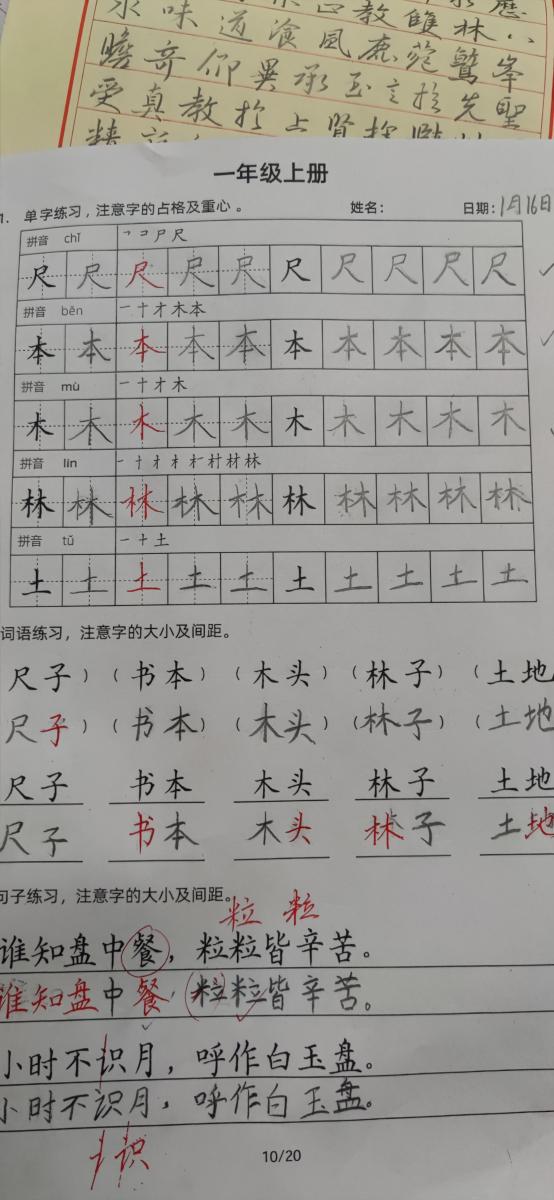 味道飡風鹿苑鷲峯
瞻奇仰異承至言於先聖
受真教於上賢探賾
一年级上册
1. 单字练习，注意字的占格及重心。 姓名： 日期：1月16日
拼音 chǐ
尺 尺 尺 尺 尺 尺 尺 尺 尺 尺
拼音 běn 一十才木本
本 本 本 本 本 本 本 本 本 本
拼音 mù 一十才木
木 木 木 木 木 木 木 木 木 木
拼音 lín
林 林 林 林 林 林 林 林 林 林
拼音 tǔ 一十土
土 土 土 土 土 土 土 土 土 土
词语练习，注意字的大小及间距。
尺子）（书本）（木头）（林子）（土地
尺子）（书本）（木头）（林子）（土地
尺子 书本 木头 林子 土地
尺子 书本 木头 林子 土地
句子练习，注意字的大小及间距。
粒 粒
谁知盘中餐，粒粒皆辛苦。
谁知盘中餐，粒粒皆辛苦。
小时不识月，呼作白玉盘。
小时不识月，呼作白玉盘。
识
10/20